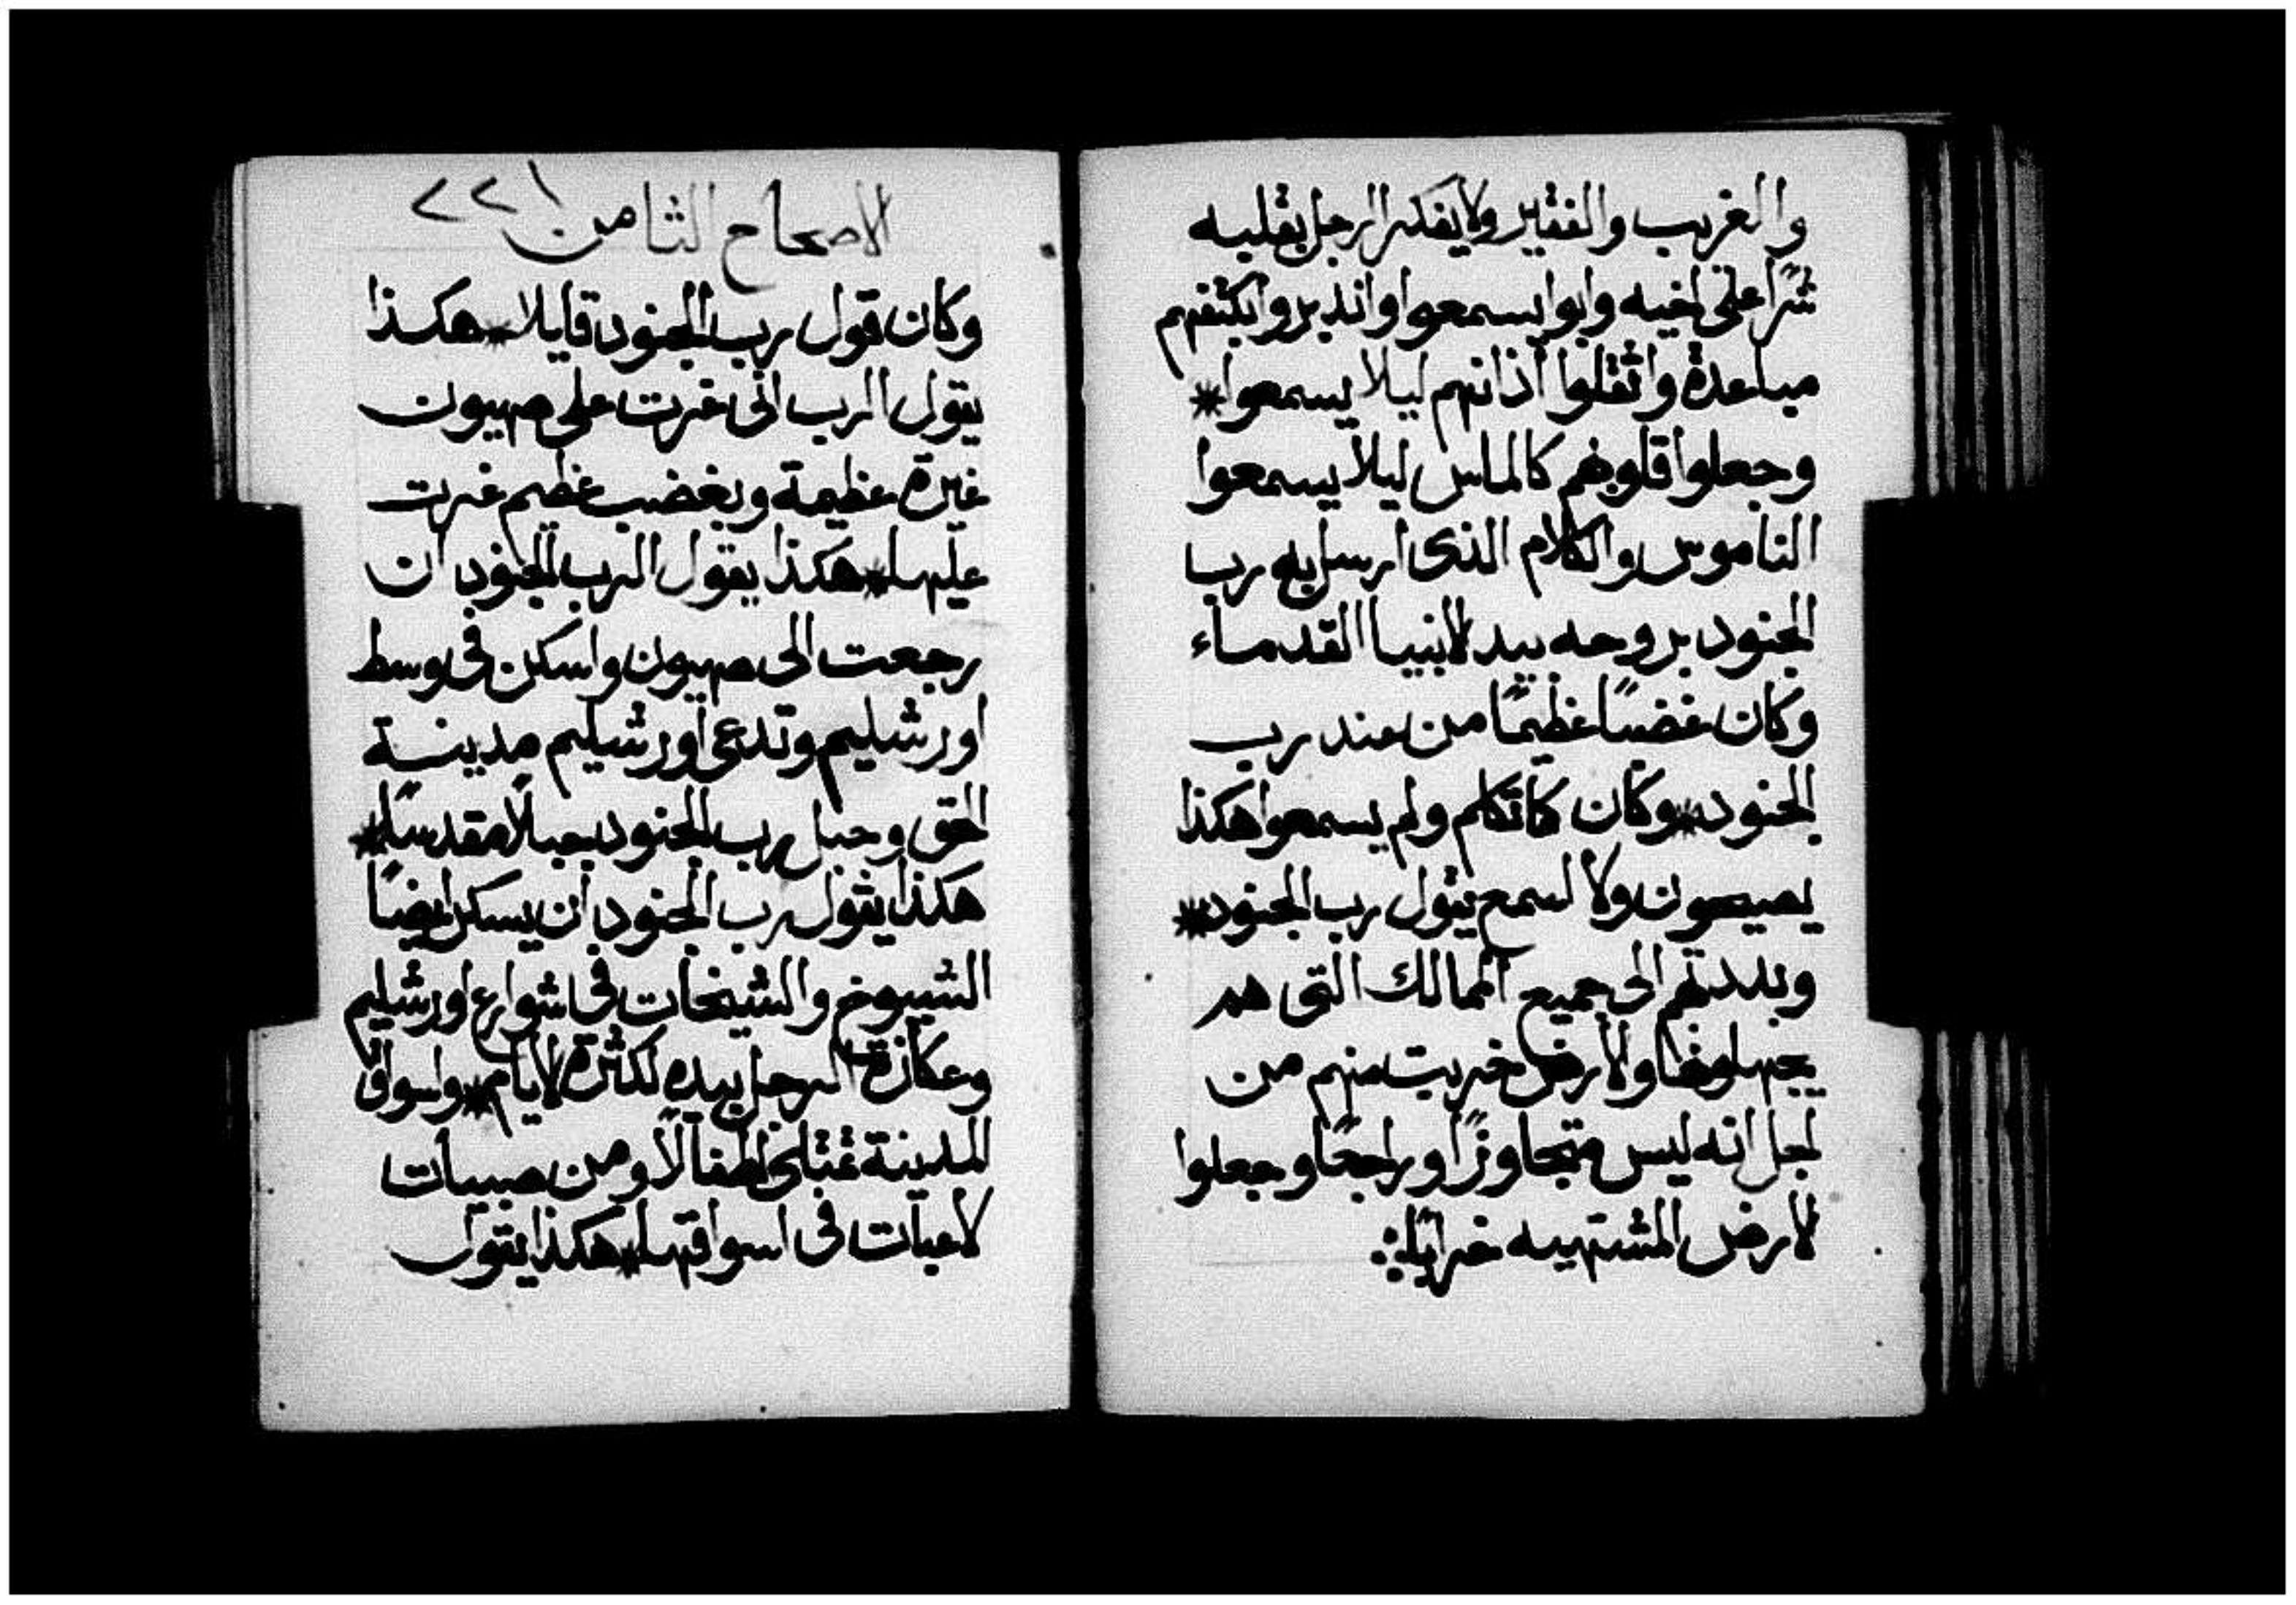 والغريب والفقير ولا يفكر الرجل بقلبه
شرًا على اخيه وابوا يسمعوا واندبروا بكتفهم
مباعدة واثقلوا أذانهم ليلا يسمعوا*
وجعلوا قلوبهم كالماس ليلا يسمعوا
الناموس والكلام الذى ارسل به رب
الجنود بروحه بيد لانبيا القدماء
وكان غضبًا عظيمًا من عند رب
الجنود*وكان كاتكلم ولم يسمعوا هكذا
يصيحون ولا اسمع يقول رب الجنود*
وبددتهم الى جميع الممالك التى هم
يجهلونها ولأرض خربت منهم من
لجل انه ليس متجاوزًا وراجعًا وجعلوا
لارض المشتهيه خرابًا
الاصحاح الثامن ٢٢١
وكان قول رب الجنود قايلا*هكذا
يقول الرب انى غرت على صهيون
غيرة عظيمة وبغضب عظيم غرت
عليها*هكذا يقول الرب الجنود ان
رجعت الى صهيون واسكن فى وسط
اورشليم وتدعى أورشليم مدينة
الحق وجبل رب الجنود جبلًا مقدسًا*
هكذا يقول رب الجنود أن يسكن ايضًا
الشيوخ والشيخات فى شوارع اورشليم
وعكازة الرجل بيده لكثرة لايام*واسواق
المدينة تمتلى اطفالًا ومن صبيات
لاعبات فى اسواقها*هكذا يقول